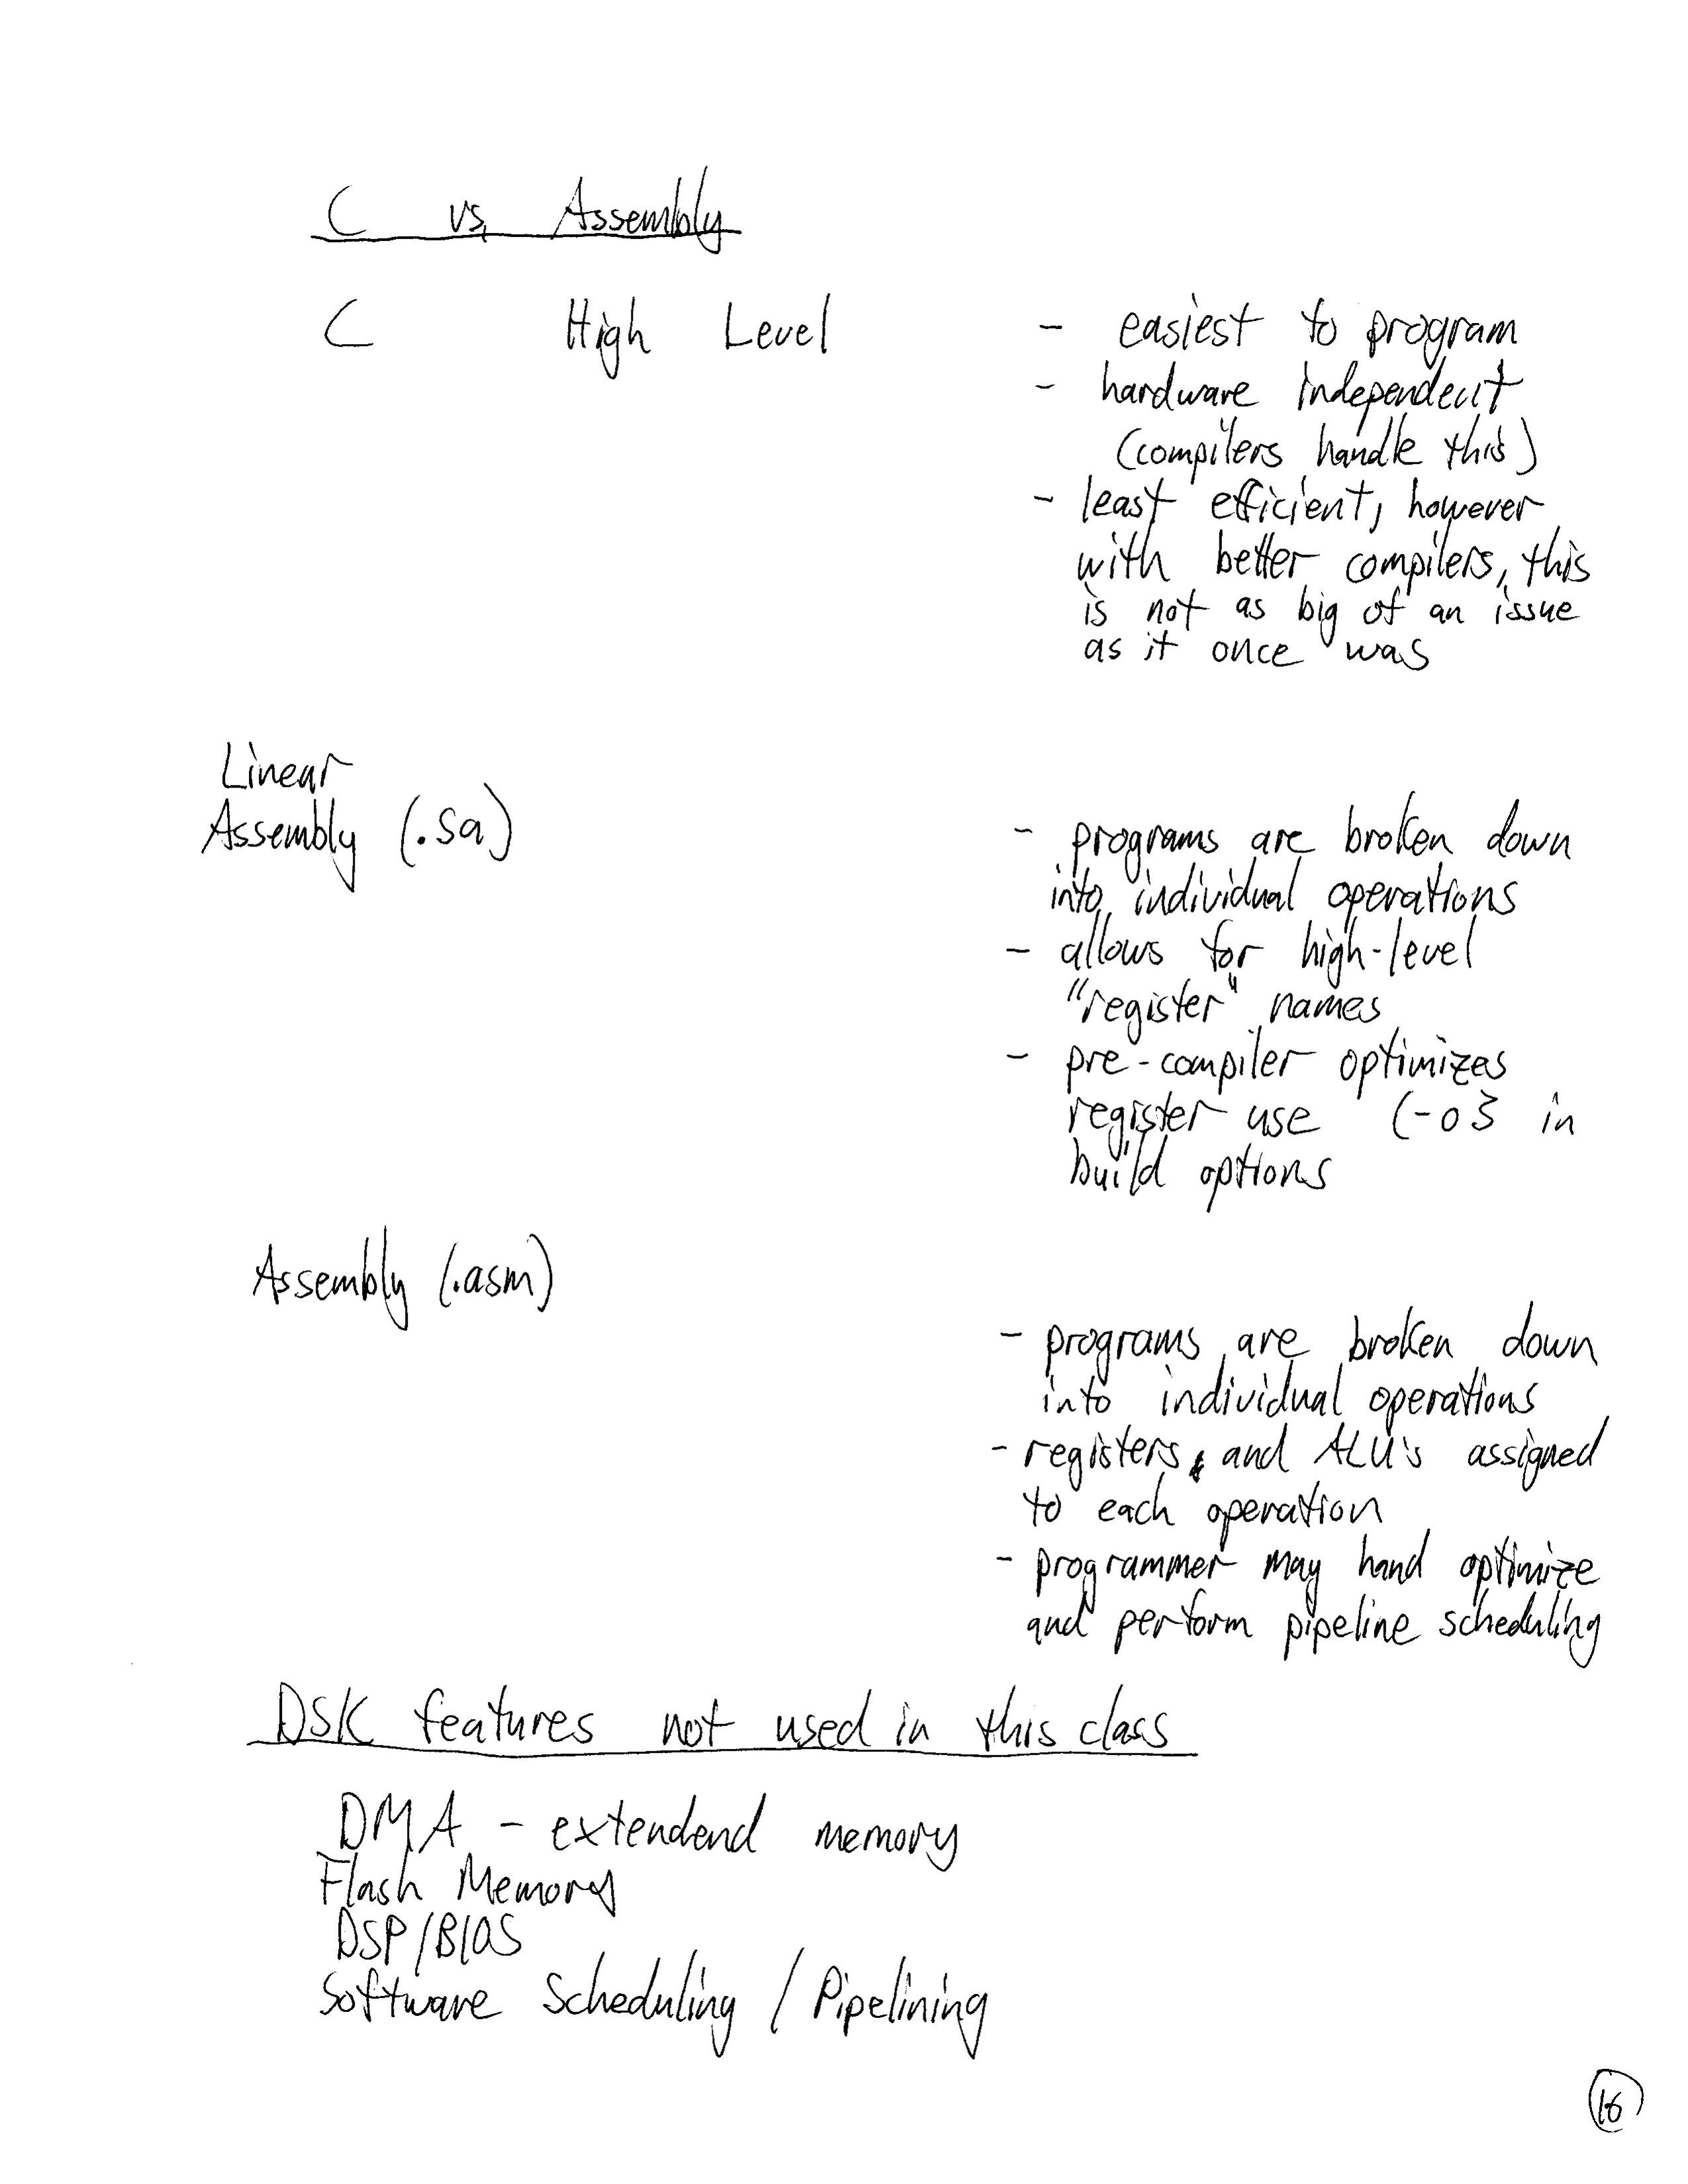 C vs. Assembly
C High Level - easiest to program
- hardware independent
(compilers handle this)
- least efficient, however
with better compilers, this
is not as big of an issue
as it once was
Linear
Assembly (.sa)
- programs are broken down
into individual operations
- allows for high-level
"register" names
- pre-compiler optimizes
register use (-o3 in
build options
Assembly (.asm)
- programs are broken down
into individual operations
- registers and ALU's assigned
to each operation
- programmer may hand optimize
and perform pipeline scheduling
DSK features not used in this class
DMA - extendend memory
Flash Memory
DSP/BIOS
Software Scheduling / Pipelining
16